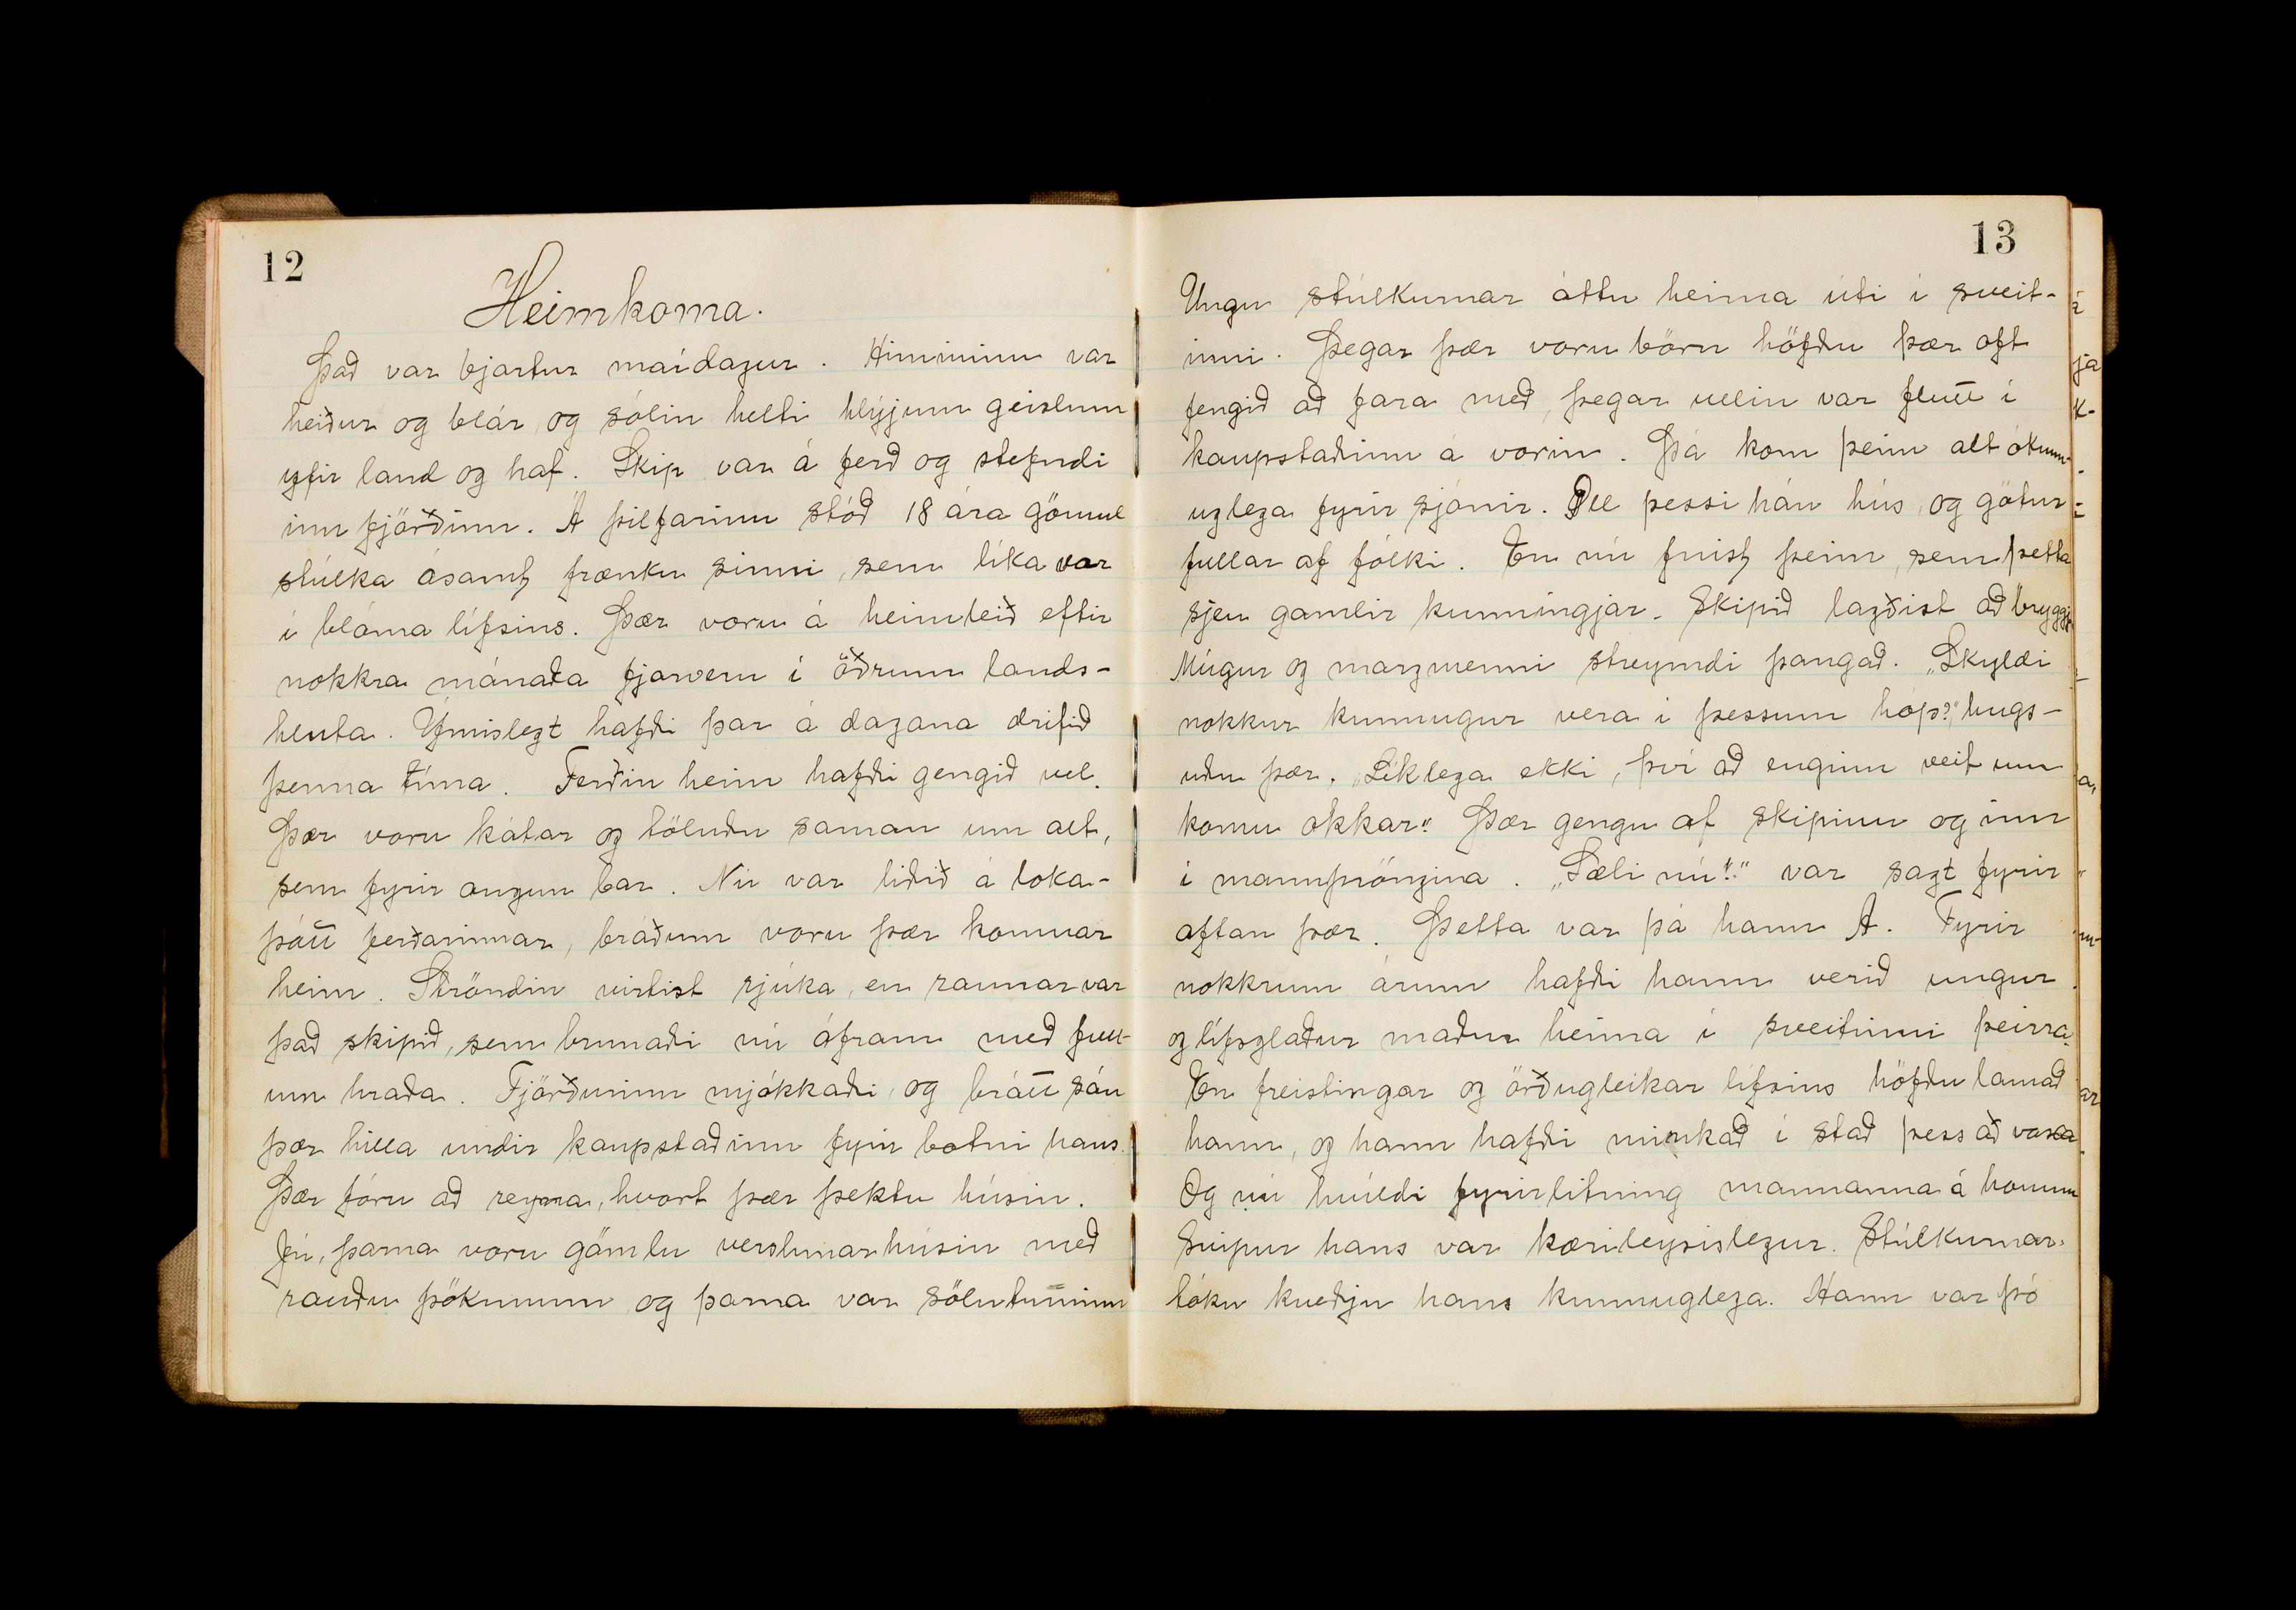 12
Heimkoma.
Það var bjartur maídagur. Himininn var
heiður og blár, og sólin helti hlýjum geislum
yfir land og haf. Skip var á ferð og stefndi
inn fjörðinn. Á þilfarinu stóð 18 ára gömul
stúlka ásamt frænku sinni, sem líka var
í blóma lífsins. Þær voru á heimleið eftir
nokkra mánaða fjarveru í öðrum lands-
hluta. Ýmislegt hafði þar á dagana drifið
þenna tíma. Ferðin heim hafði gengið vel.
Þær voru kátar og töluðu saman um alt,
sem fyrir augun bar. Nú var liðið á loka-
þátt ferðarinnar, bráðum voru þær komnar
heim. Ströndin virtist rjúka, en raunar var
það skipið, sem brunaði nú áfram með full-
um hraða. Fjörðurinn mjókkaði, og brátt sáu
þær hilla undir kaupstaðinn fyrir botni hans.
Þær fóru að reyna, hvort þær þektu húsin.
Jú, þarna voru gömlu verslunarhúsin með
rauðu þökunum og þarna var söluturninn
13
Ungu stúlkurnar áttu heima úti í sveit-
inni. Þegar þær voru börn höfðu þær oft
fengið að fara með, þegar ullin var flutt í
kaupstaðinn á vorin. Þá kom þeim alt ókunn-
uglega fyrir sjónir. Öll þessi háu hús, og götur
fullar af fólki. En nú fnist þeim, sem þetta
sjeu gamlir kunningjar. Skipið lagðist að bryggju
Múgur og margmenni streymdi þangað. „Skyldi
nokkur kunnugur vera í þessum hóp?", hugs-
uðu þær. „Líklega ekki, því að enginn veit um
komu okkar". Þær gengu af skipinu og inn
í mannþröngina. „Sæli nú!" var sagt fyrir
aftan þær. Þetta var þá hann A. Fyrir
nokkrum árum hafði hann verið ungur
og lífsglaður maður heima í sveitinni þeirra.
En freistingar og örðugleikar lífsins höfðu lamað
hann, og hann hafði minkað í stað þess að vaxa.
Og nú hvíldi fyrirlitning mannanna á honum
Svipur hans var kæruleysislegur. Stúlkurnar
tóku kveðju hans kunnuglega. Hann var þó